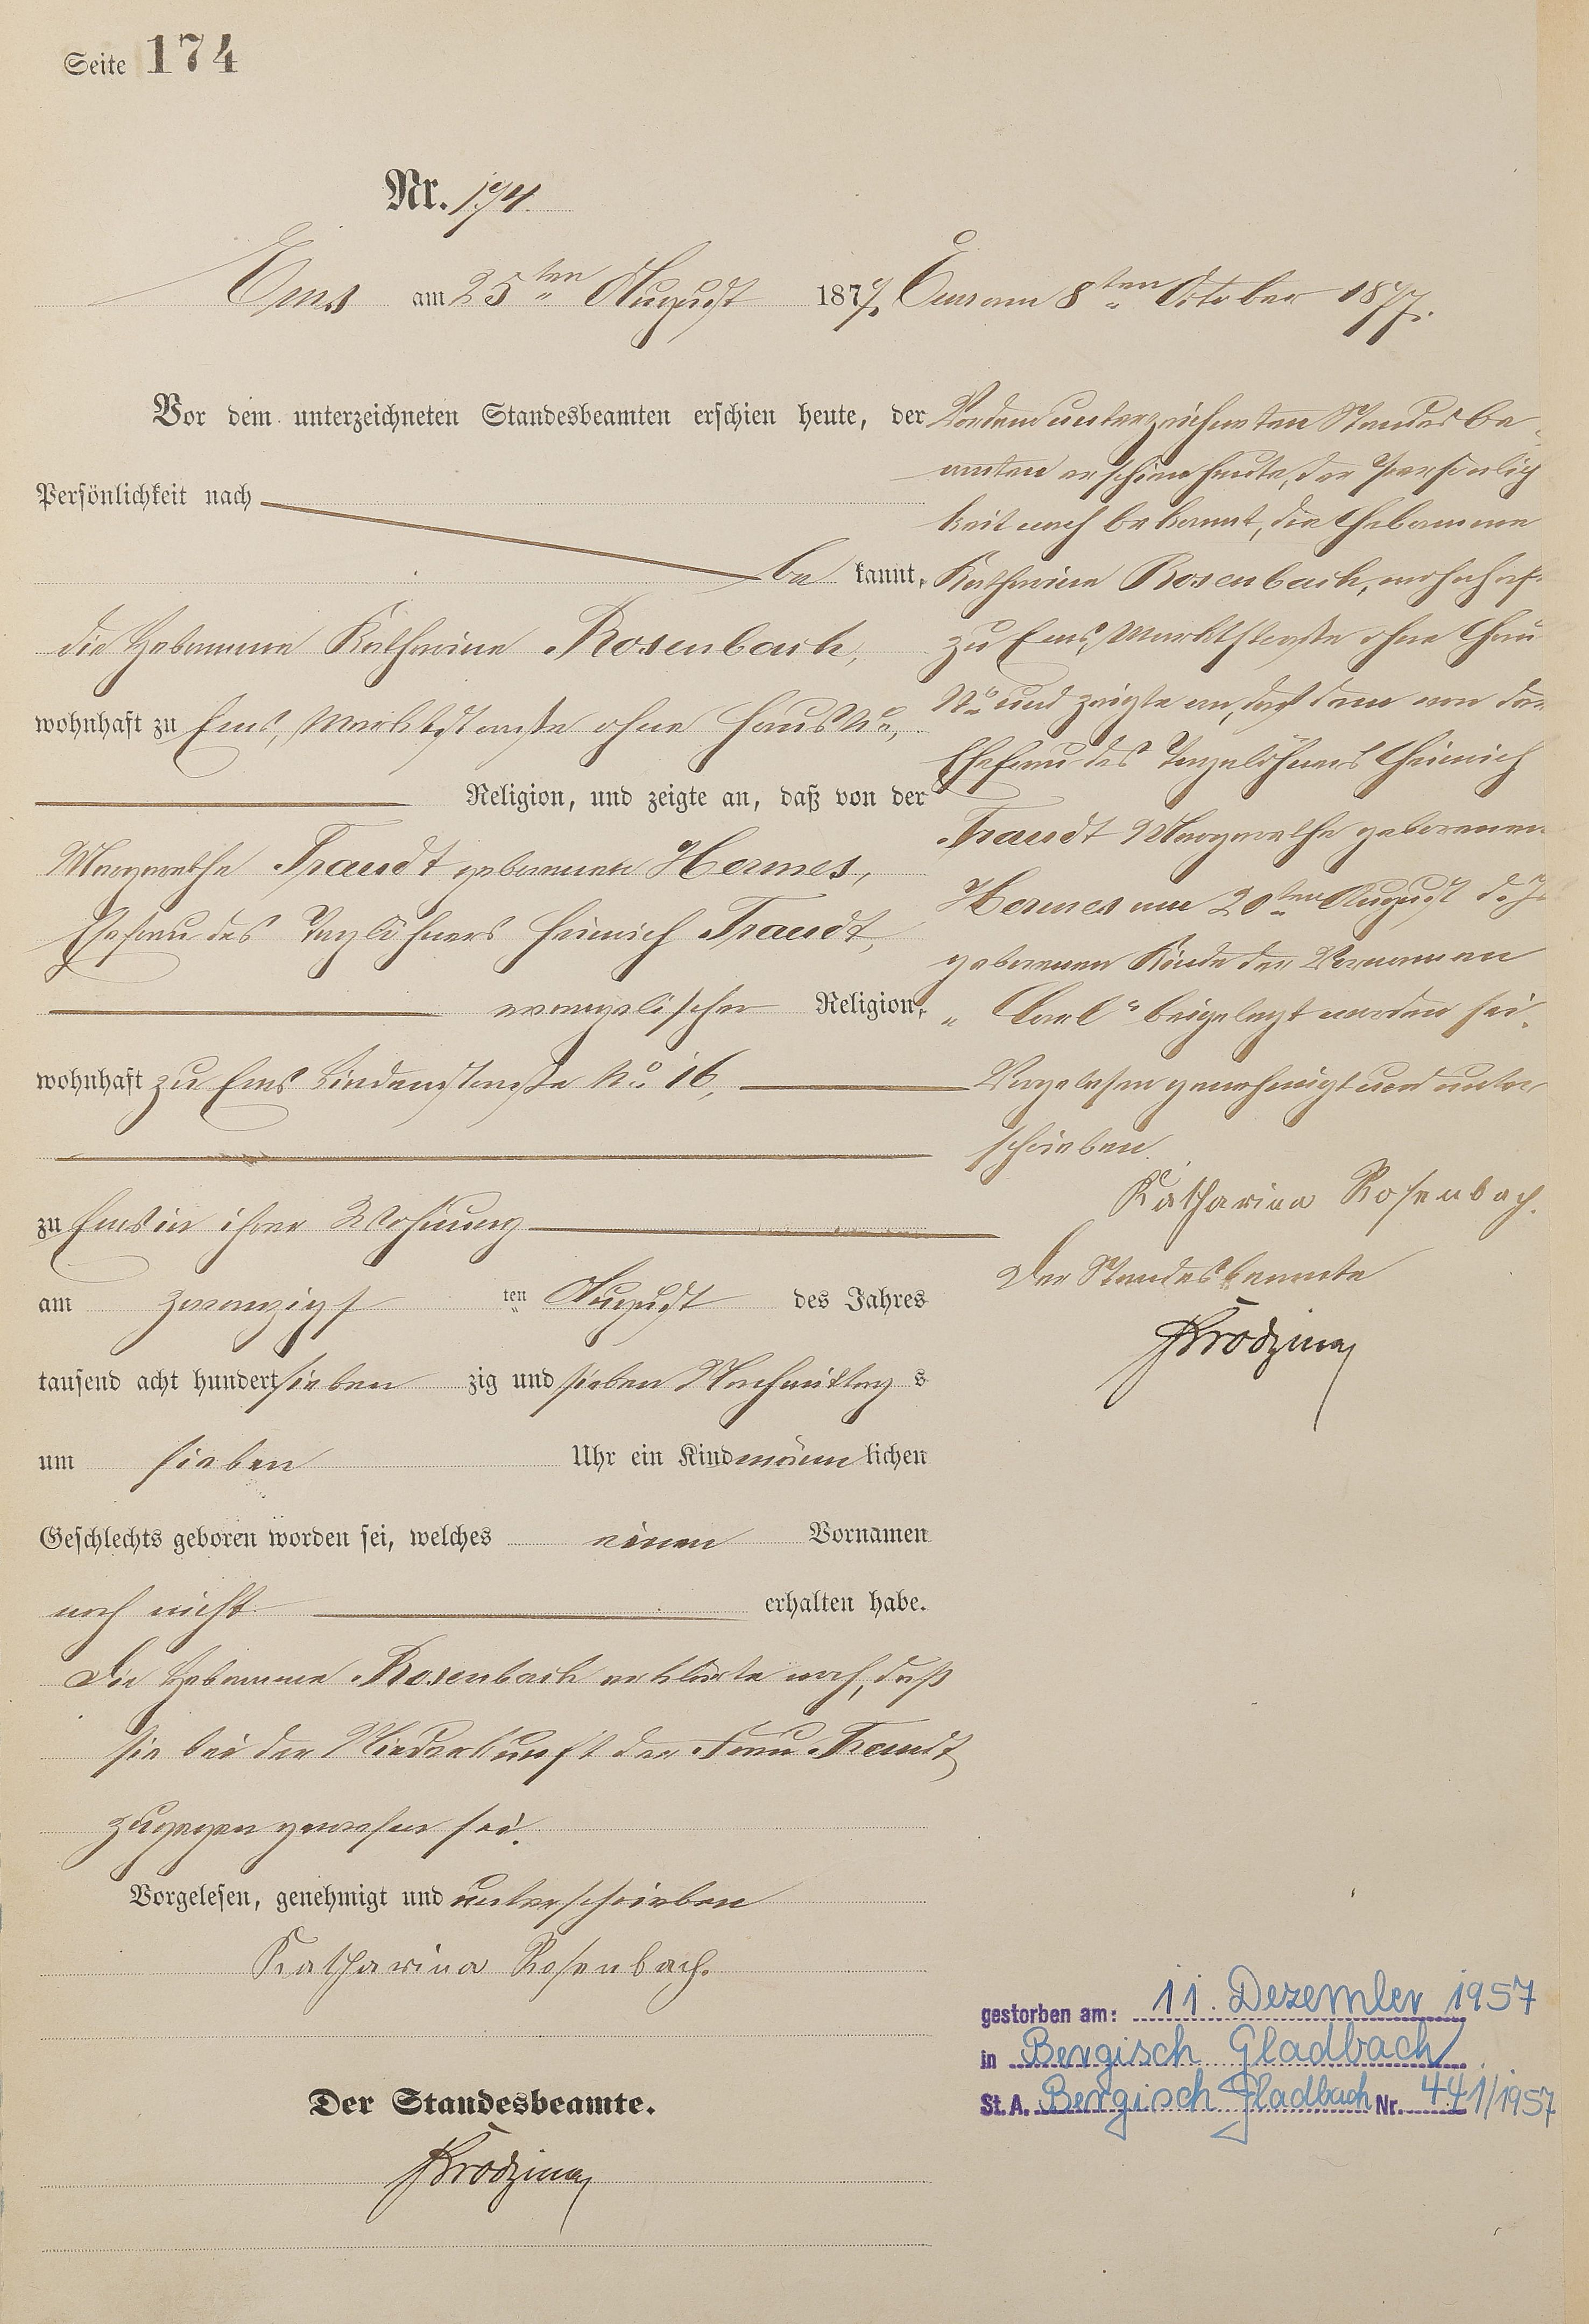 Seite 174
Nr. 174.
Ems am 25ten August 1877.
Vor dem unterzeichneten Standesbeamten erschien heute, der
Persönlichkeit nach
be kannt,
die Hebamme Katharine Rosenbach,
wohnhaft zu Ems, Marktstraße ohne Haus No,
Religion, und zeigte an, daß von der
Margarethe Traudt geborenen Hermes,
Ehefrau des Taglöhners Heinrich Traudt,
evangelischer Religion,
wohnhaft zu Ems Lindenstraße No 16,
zu Ems in ihrer Wohnung
am zwanzigs ten August des Jahres
tausend acht hundert sieben zig und sieben Nachmittag s
um sieben Uhr ein Kind männ lichen
Geschlechts geboren worden sei, welches einen Vornamen
noch nicht erhalten habe.
Die Hebamme Rosenbach erklärte noch, daß
sie bei der Niederkunft der Frau Traudt
zugegen gewesen sei.
Vorgelesen, genehmigt und unterschrieben
Katharina Rosenbach.
Der Standesbeamte.
Ems am 8ten October 1877.
Vor dem unterzeichneten Standesbe-
amten erschien heute, der Persönlich
keit nach bekannt, die Hebamme
Katharine Rosenbach, wohnhaft
zu Ems, Marktstraße ohne Haus
No und zeigte an, daß dem von der
Ehefrau des Tagelöhners Heinrich
Traudt Margarethe geborenen
Hermes am 20ten August d. Js
geborenen Kinde der Vornamen
"Carl" beigelegt worden sei.
Vorgelesen genehmigt und unter
schrieben
Katharina Rosenbach.
Der Standesbeamte
gestorben am: 11. Dezember 1957
in Bergisch Gladbach
St. A. Bergisch Gladbach Nr. 441/1957